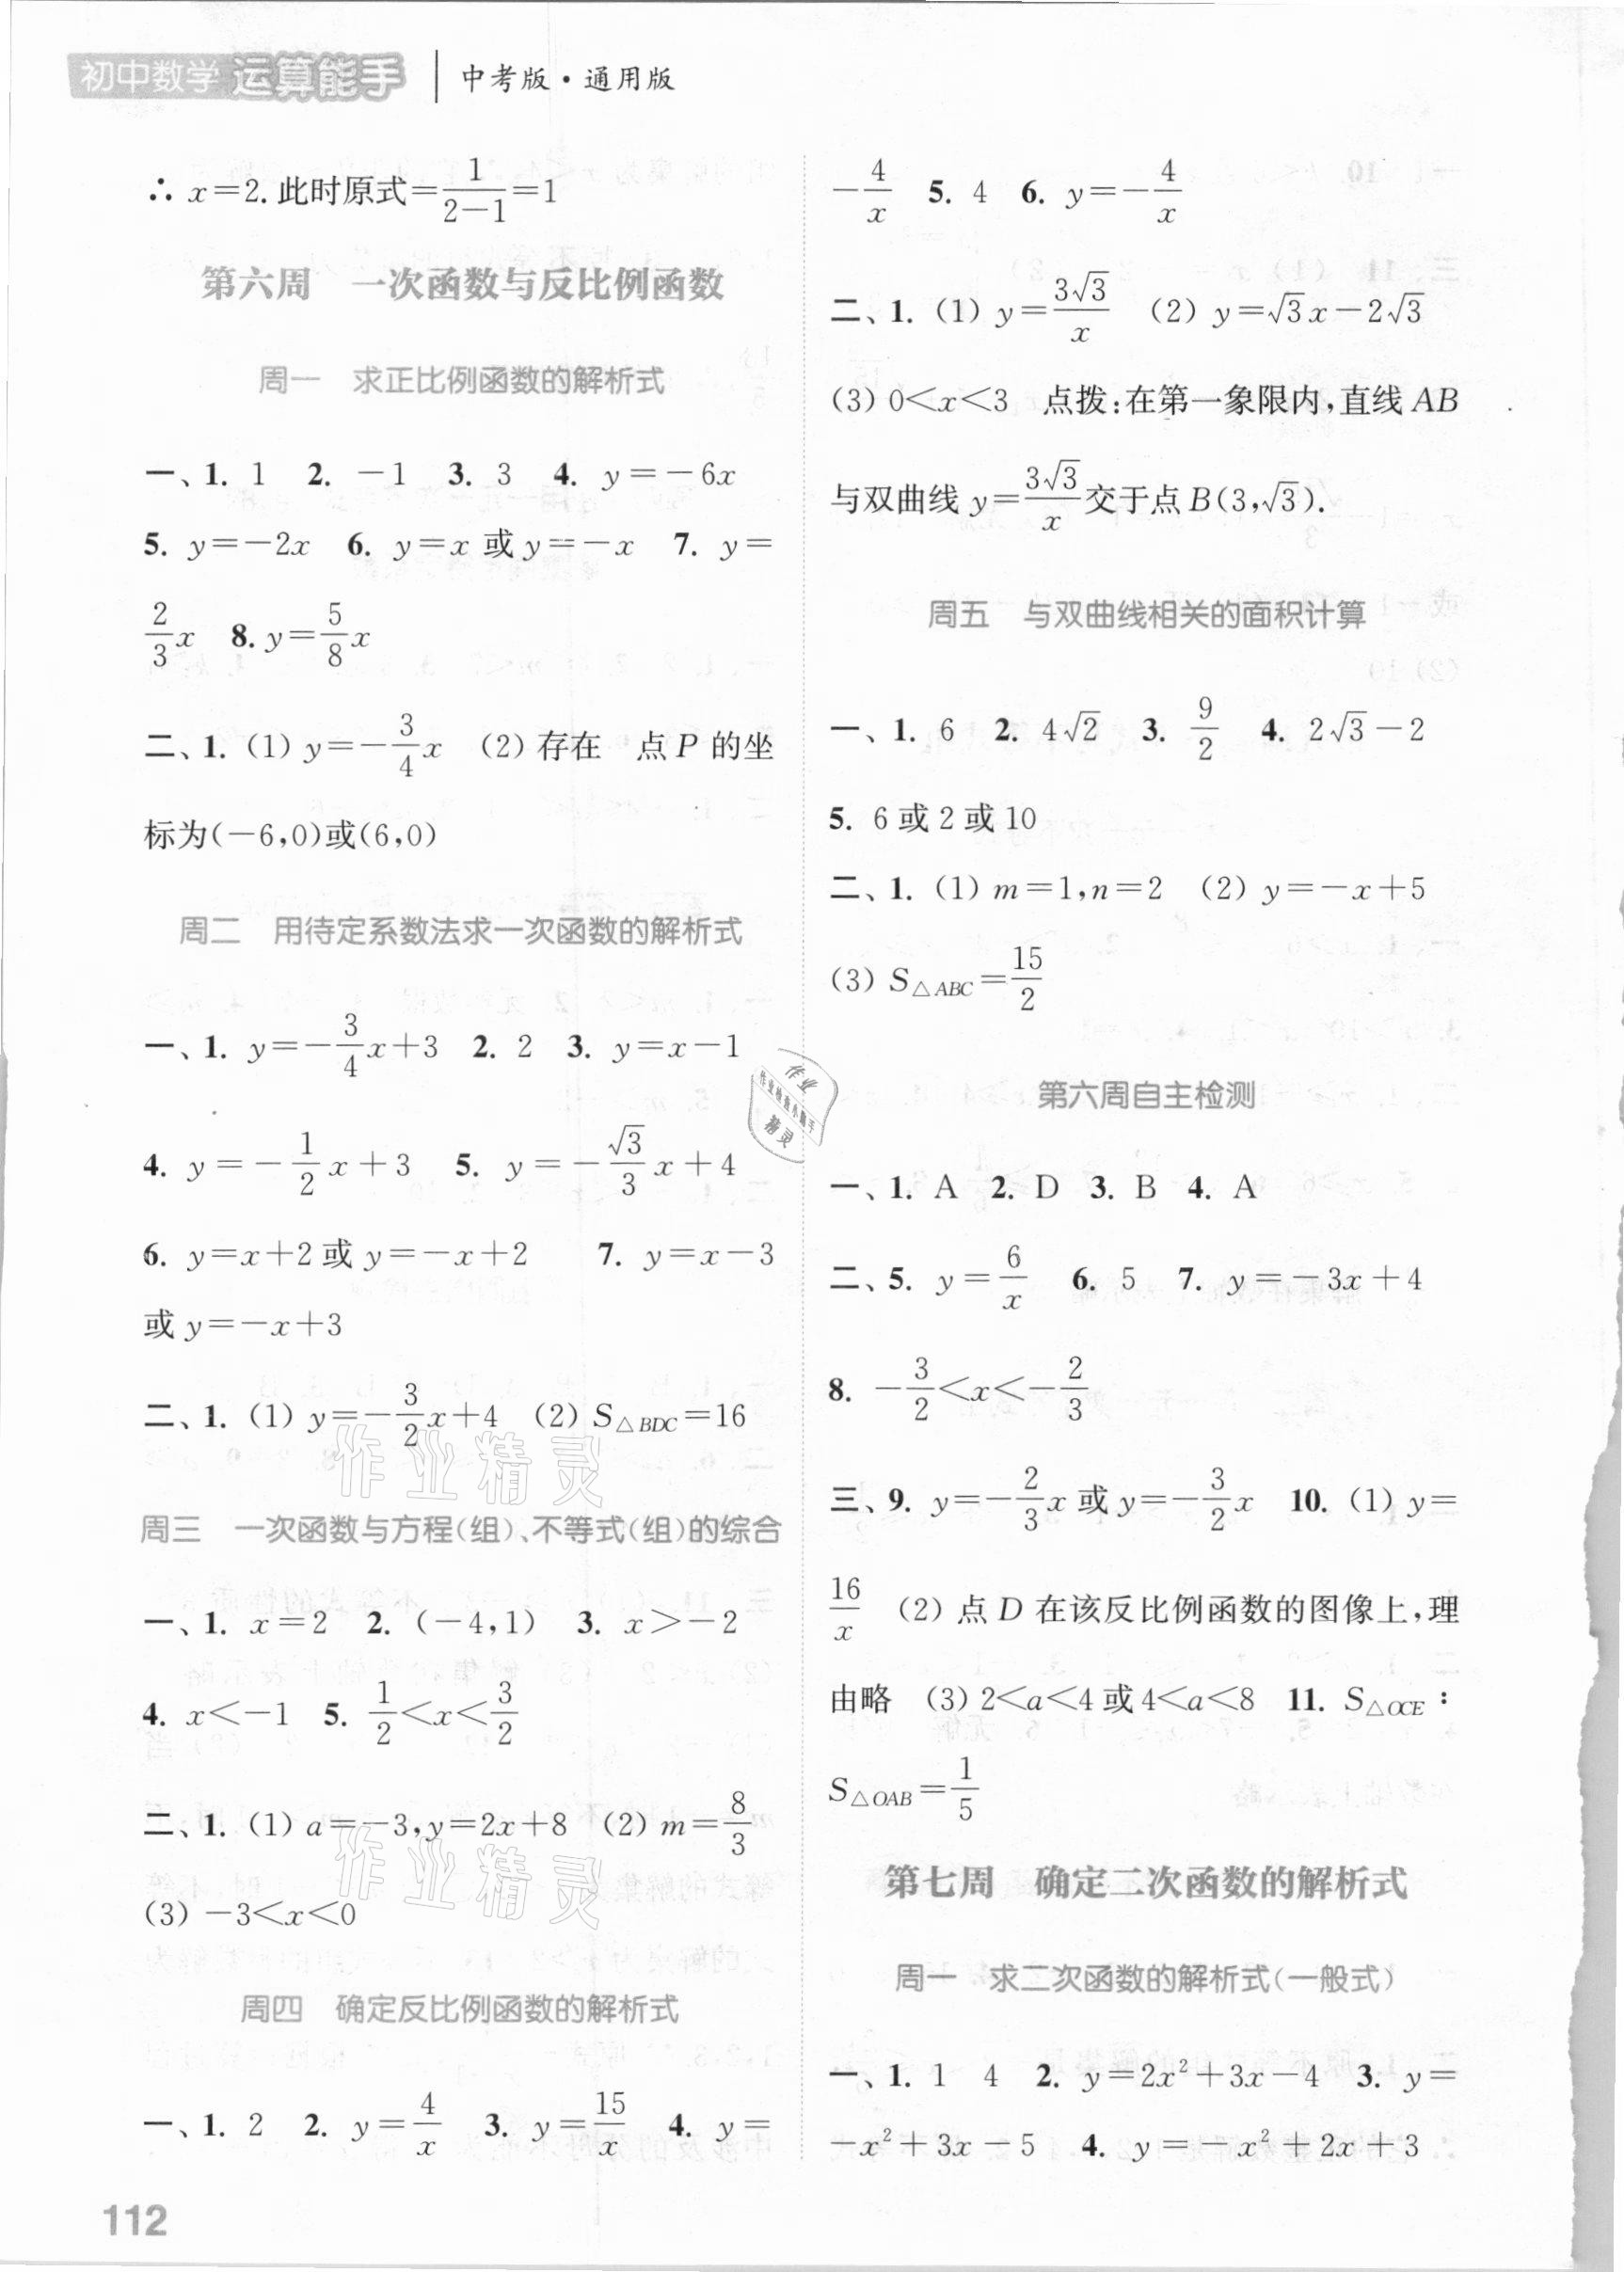 初中数学 运算能手 中考版·通用版
∴ x=2. 此时原式=\frac{1}{2-1}=1
第六周 一次函数与反比例函数
周一 求正比例函数的解析式
一、1. 1 2. -1 3. 3 4. y=-6x
5. y=-2x 6. y=x 或 y=-x 7. y=
\frac{2}{3}x 8. y=\frac{5}{8}x
二、1. (1) y=-\frac{3}{4}x (2) 存在 点 P 的坐
标为(-6,0)或(6,0)
周二 用待定系数法求一次函数的解析式
一、1. y=-\frac{3}{4}x+3 2. 2 3. y=x-1
4. y=-\frac{1}{2}x+3 5. y=-\frac{√3}{3}x+4
6. y=x+2 或 y=-x+2 7. y=x-3
或 y=-x+3
二、1. (1) y=-\frac{3}{2}x+4 (2) S△BDC=16
周三 一次函数与方程(组)、不等式(组)的综合
一、1. x=2 2. (-4,1) 3. x>-2
4. x<-1 5. \frac{1}{2}<x<\frac{3}{2}
二、1. (1) a=-3,y=2x+8 (2) m=\frac{8}{3}
(3) -3<x<0
周四 确定反比例函数的解析式
一、1. 2 2. y=\frac{4}{x} 3. y=\frac{15}{x} 4. y=
-\frac{4}{x} 5. 4 6. y=-\frac{4}{x}
二、1. (1) y=\frac{3√3}{x} (2) y=√3x-2√3
(3) 0<x<3 点拨:在第一象限内,直线 AB
与双曲线 y=\frac{3√3}{x}交于点 B(3,√3).
周五 与双曲线相关的面积计算
一、1. 6 2. 4√2 3. \frac{9}{2} 4. 2√3-2
5. 6 或 2 或 10
二、1. (1) m=1,n=2 (2) y=-x+5
(3) S△ABC=\frac{15}{2}
第六周自主检测
一、1. A 2. D 3. B 4. A
二、5. y=\frac{6}{x} 6. 5 7. y=-3x+4
8. -\frac{3}{2}<x<-\frac{2}{3}
三、9. y=-\frac{2}{3}x 或 y=-\frac{3}{2}x 10. (1) y=
\frac{16}{x} (2) 点 D 在该反比例函数的图像上,理
由略 (3) 2<a<4 或 4<a<8 11. S△OCE:
S△OAB=\frac{1}{5}
第七周 确定二次函数的解析式
周一 求二次函数的解析式(一般式)
一、1. 1 4 2. y=2x²+3x-4 3. y=
-x²+3x-5 4. y=-x²+2x+3
112
作业精灵
作业精灵
作业
作业检查小助手
精灵